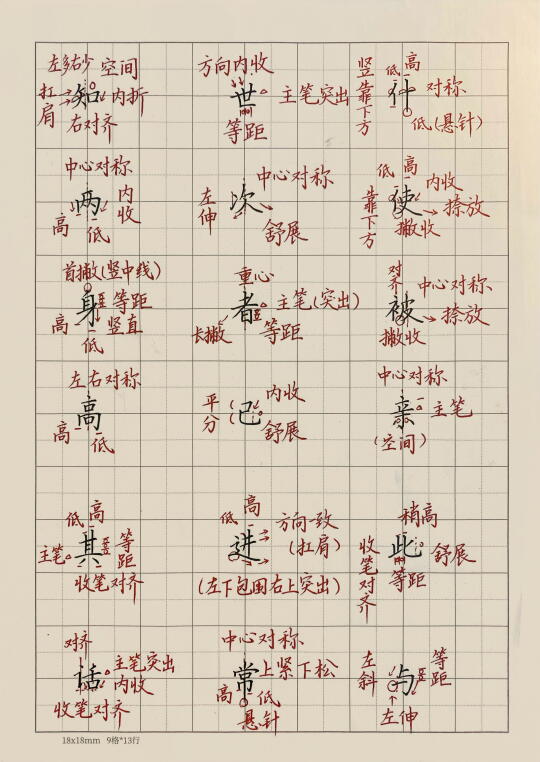 左多右少 空间
扛肩 知 内折
右对齐
方向内收
世 主笔突出
等距
竖靠下方 低 高
什 对称
低(悬针)
中心对称
两 内收
高 低
中心对称
左伸 次
舒展
低 高
靠下方 使 内收
捺放
撇收
首撇(竖中线)
身 等距
高 竖直
低
重心
者 主笔(突出)
长撇 等距
对齐 中心对称
被 捺放
撇收
左右对称
高
高 低
平分 已 内收
舒展
中心对称
亲 主笔
(空间)
低 高
主笔 其 等距
收笔对齐
低 高
进 方向一致
(扛肩)
(左下包围右上突出)
稍高
收笔对齐 此 舒展
等距
对齐
话 主笔突出
内收
收笔对齐
中心对称
常 上紧下松
高 低
悬针
左斜 与 等距
左伸
18x18mm 9格*13行